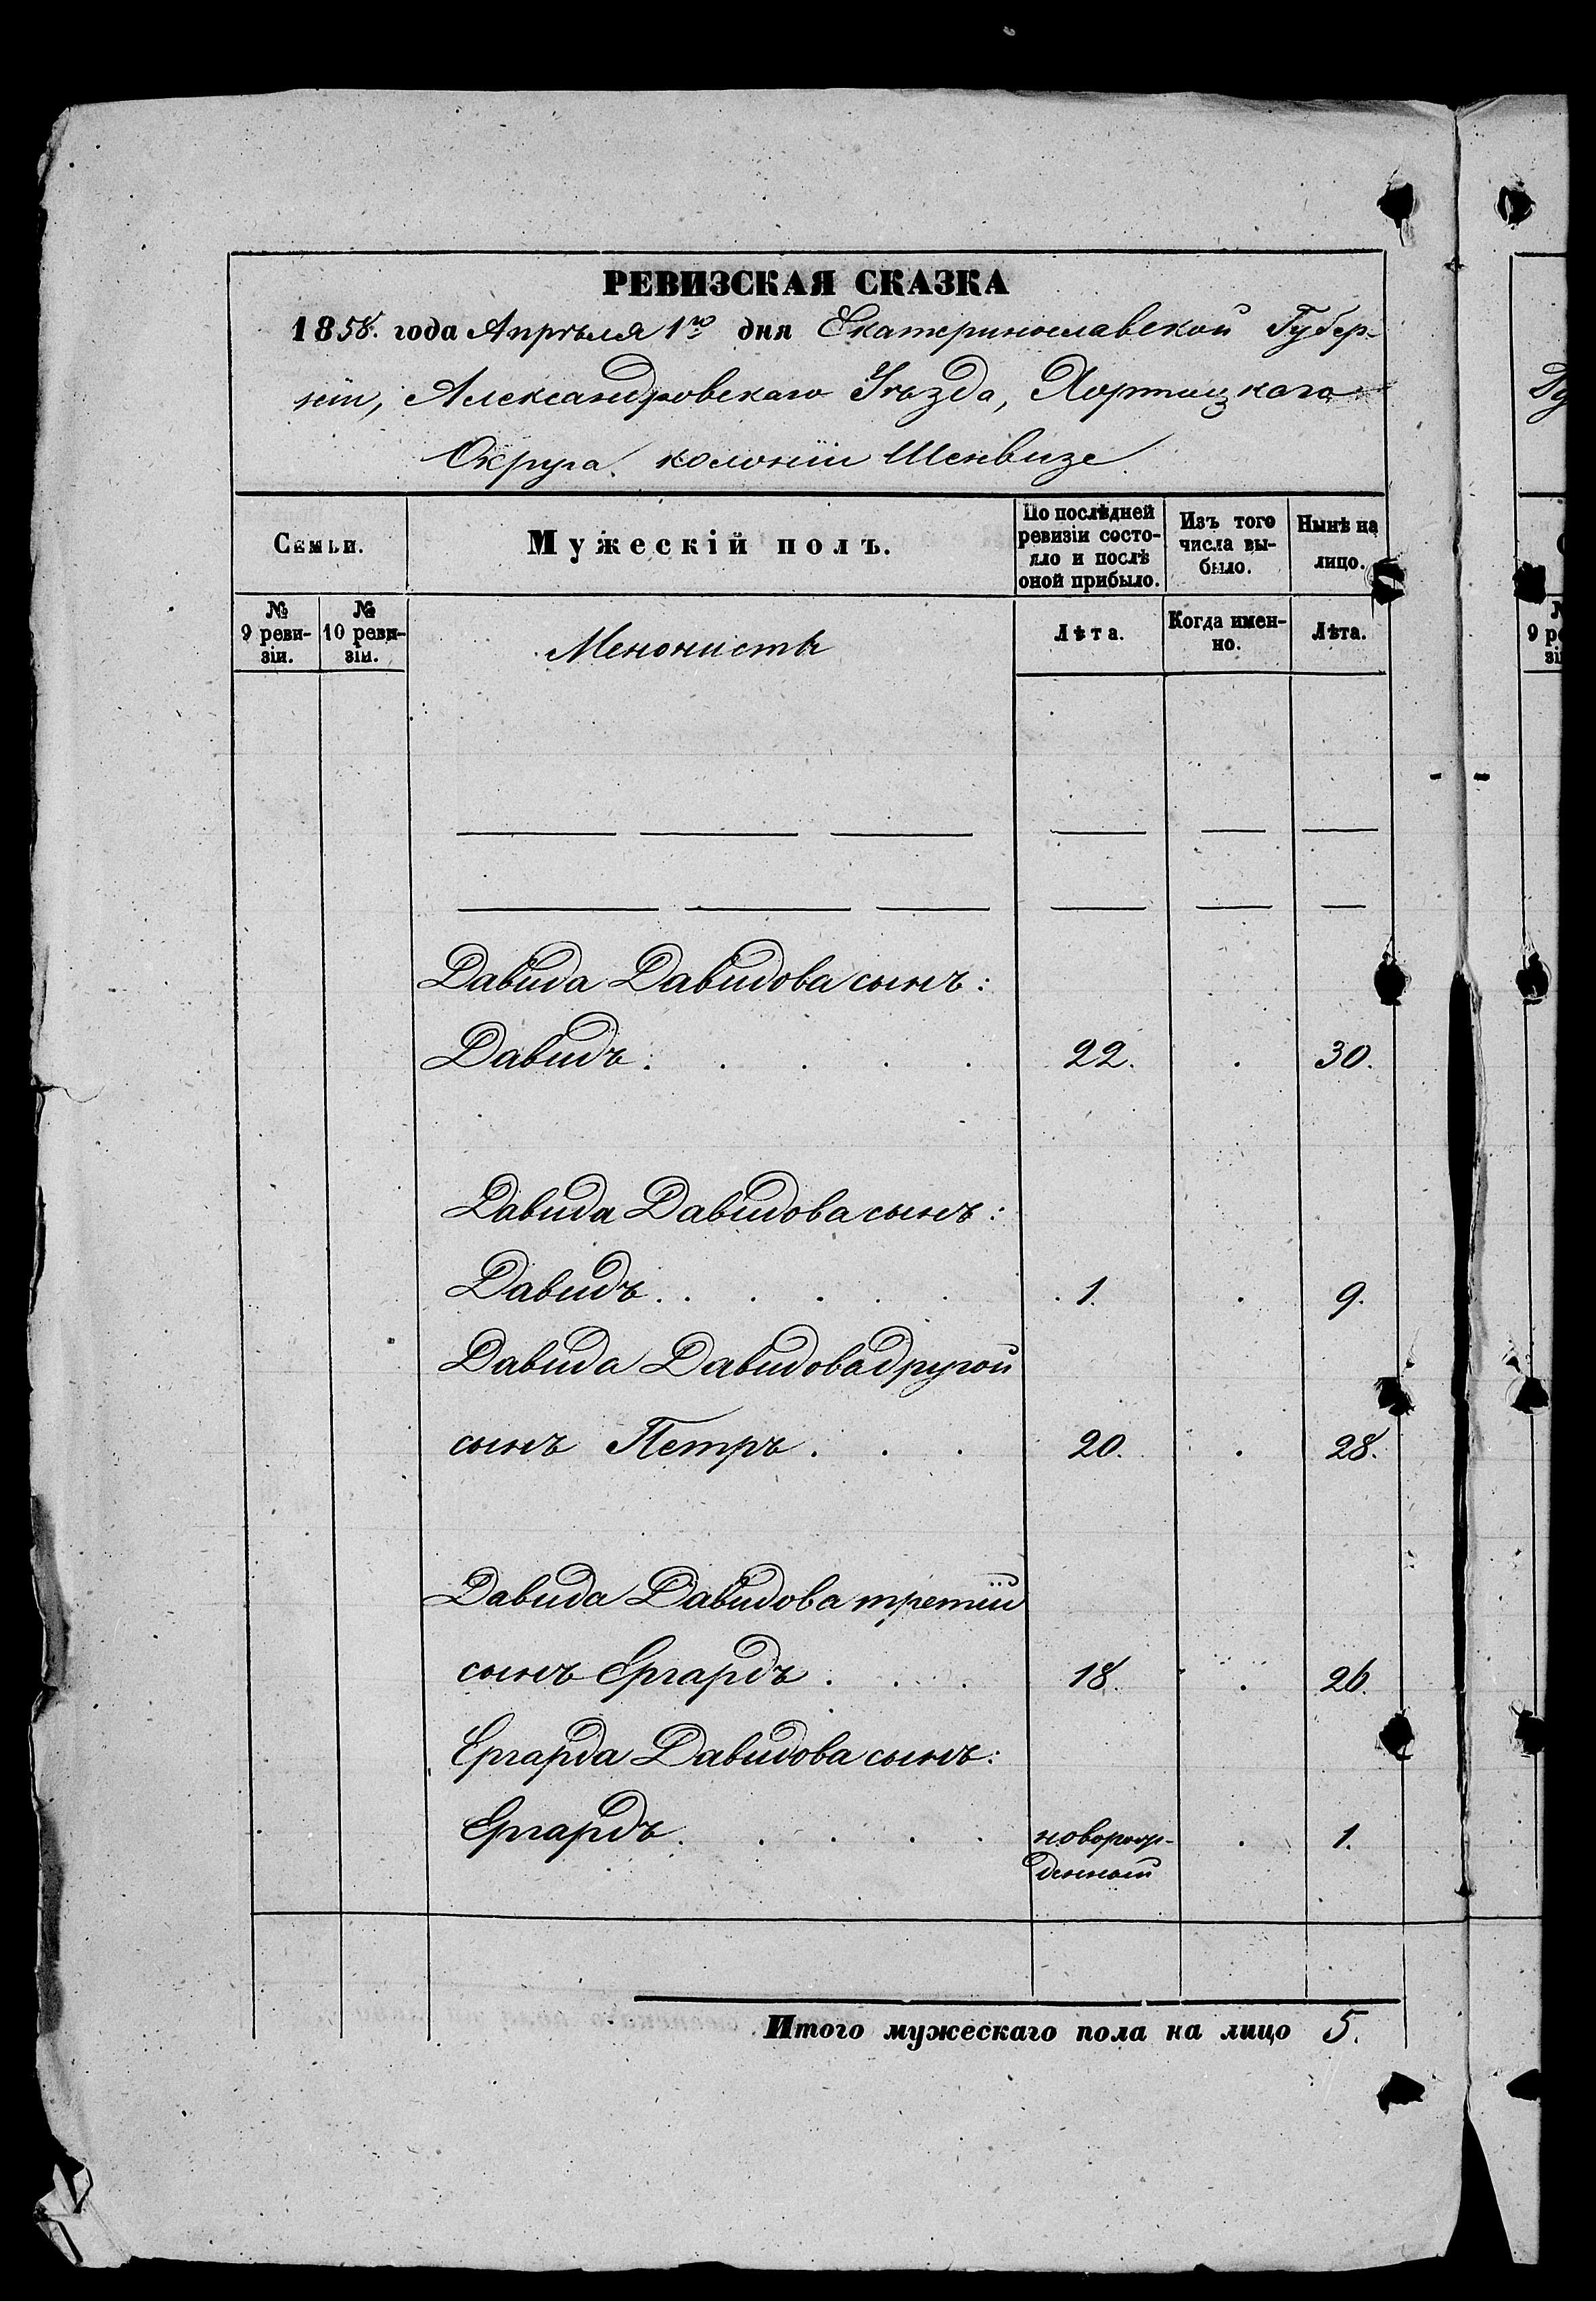 РЕВИЗСКАЯ СКАЗКА
1858. года Апрѣля 1го дня Екатеринославской Губер-
ніи, Александровскаго Уѣзда, Хортицкаго
Округа. колоніи Шенвизе
Семьи.
Мужескій полъ.
По послѣдней ревизіи состо-яло и послѣ оной прибыло.
Изъ того числа вы-было.
Нынѣ на лицо.
№ 9 реви-зіи.
№ 10 реви-зіи.
Менонистъ
Лѣта.
Когда имен-но.
Лѣта.
Давида Давидова сынъ:
Давидъ. 22. 30.
Давида Давидова сынъ:
Давидъ. 1. 9.
Давида Давидова другой
сынъ Петръ. 20. 28.
Давида Давидова третій
сынъ Ергардъ. 18. 26.
Ергарда Давидова сынъ:
Ергардъ. новорож-денный 1.
Итого мужескаго пола на лицо 5.
9 ре